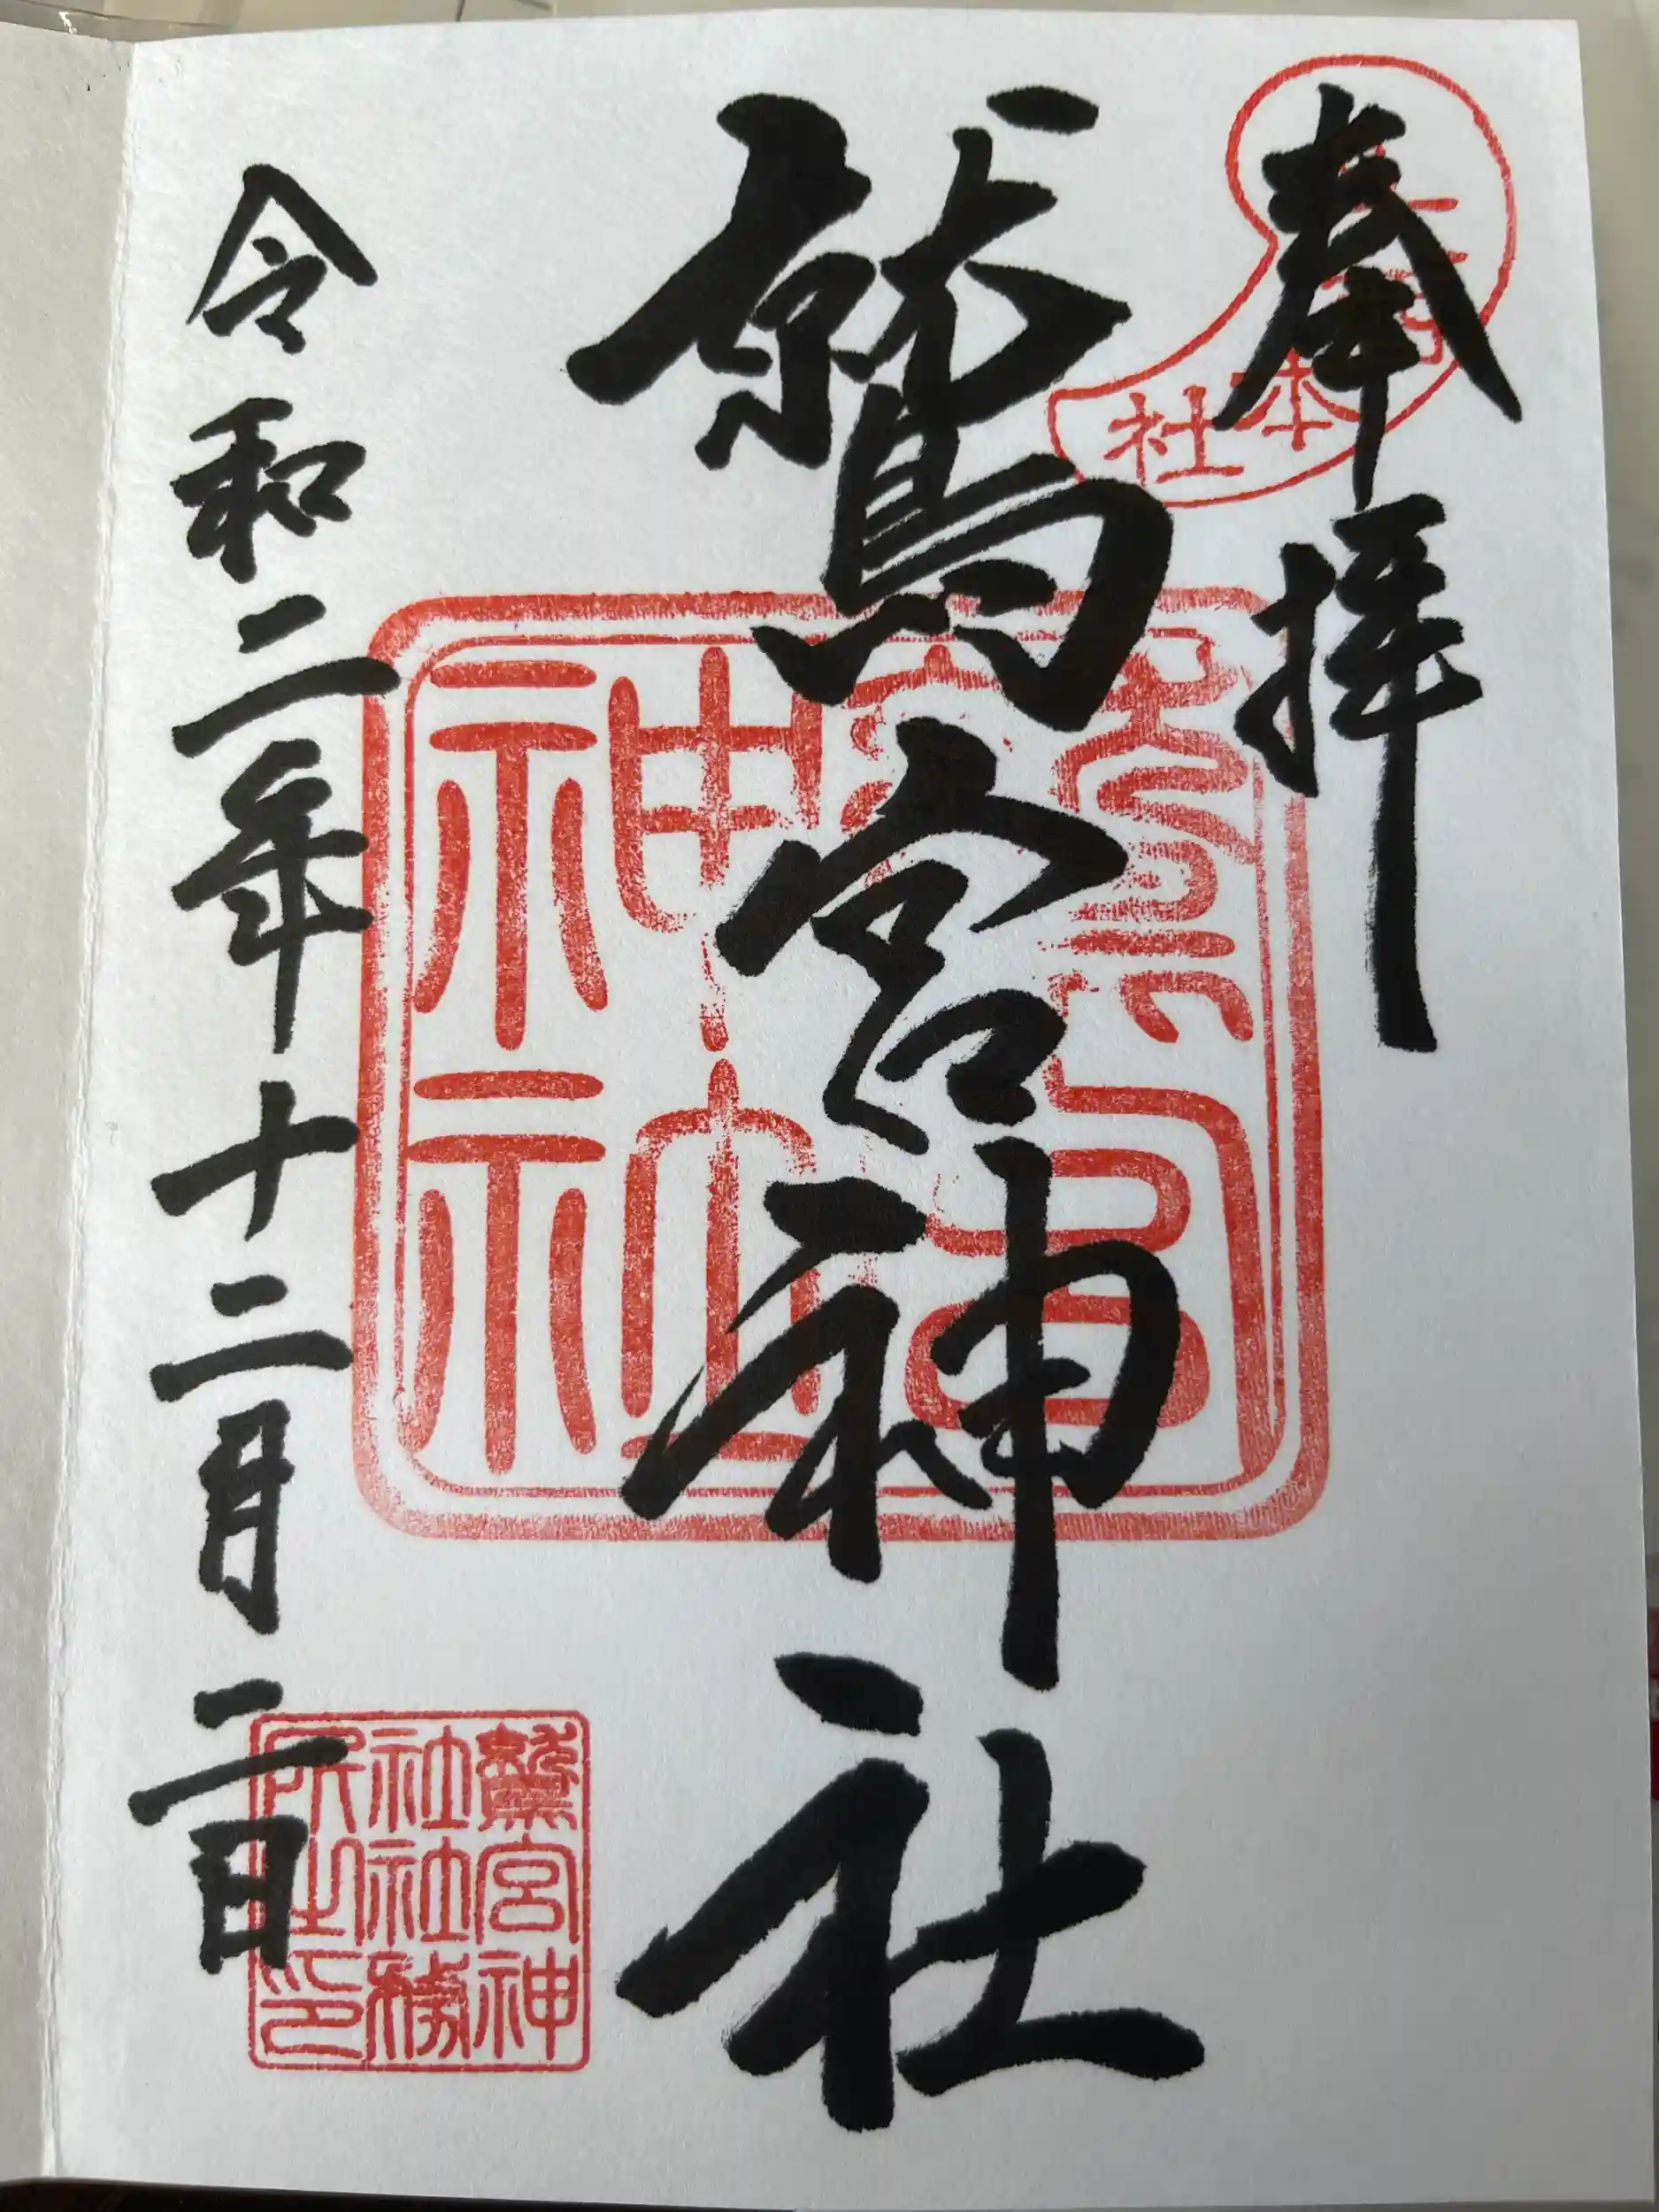 奉拝
本社
鷲宮神社
神社
令和二年十二月二日
鷲宮神
社社務
之印